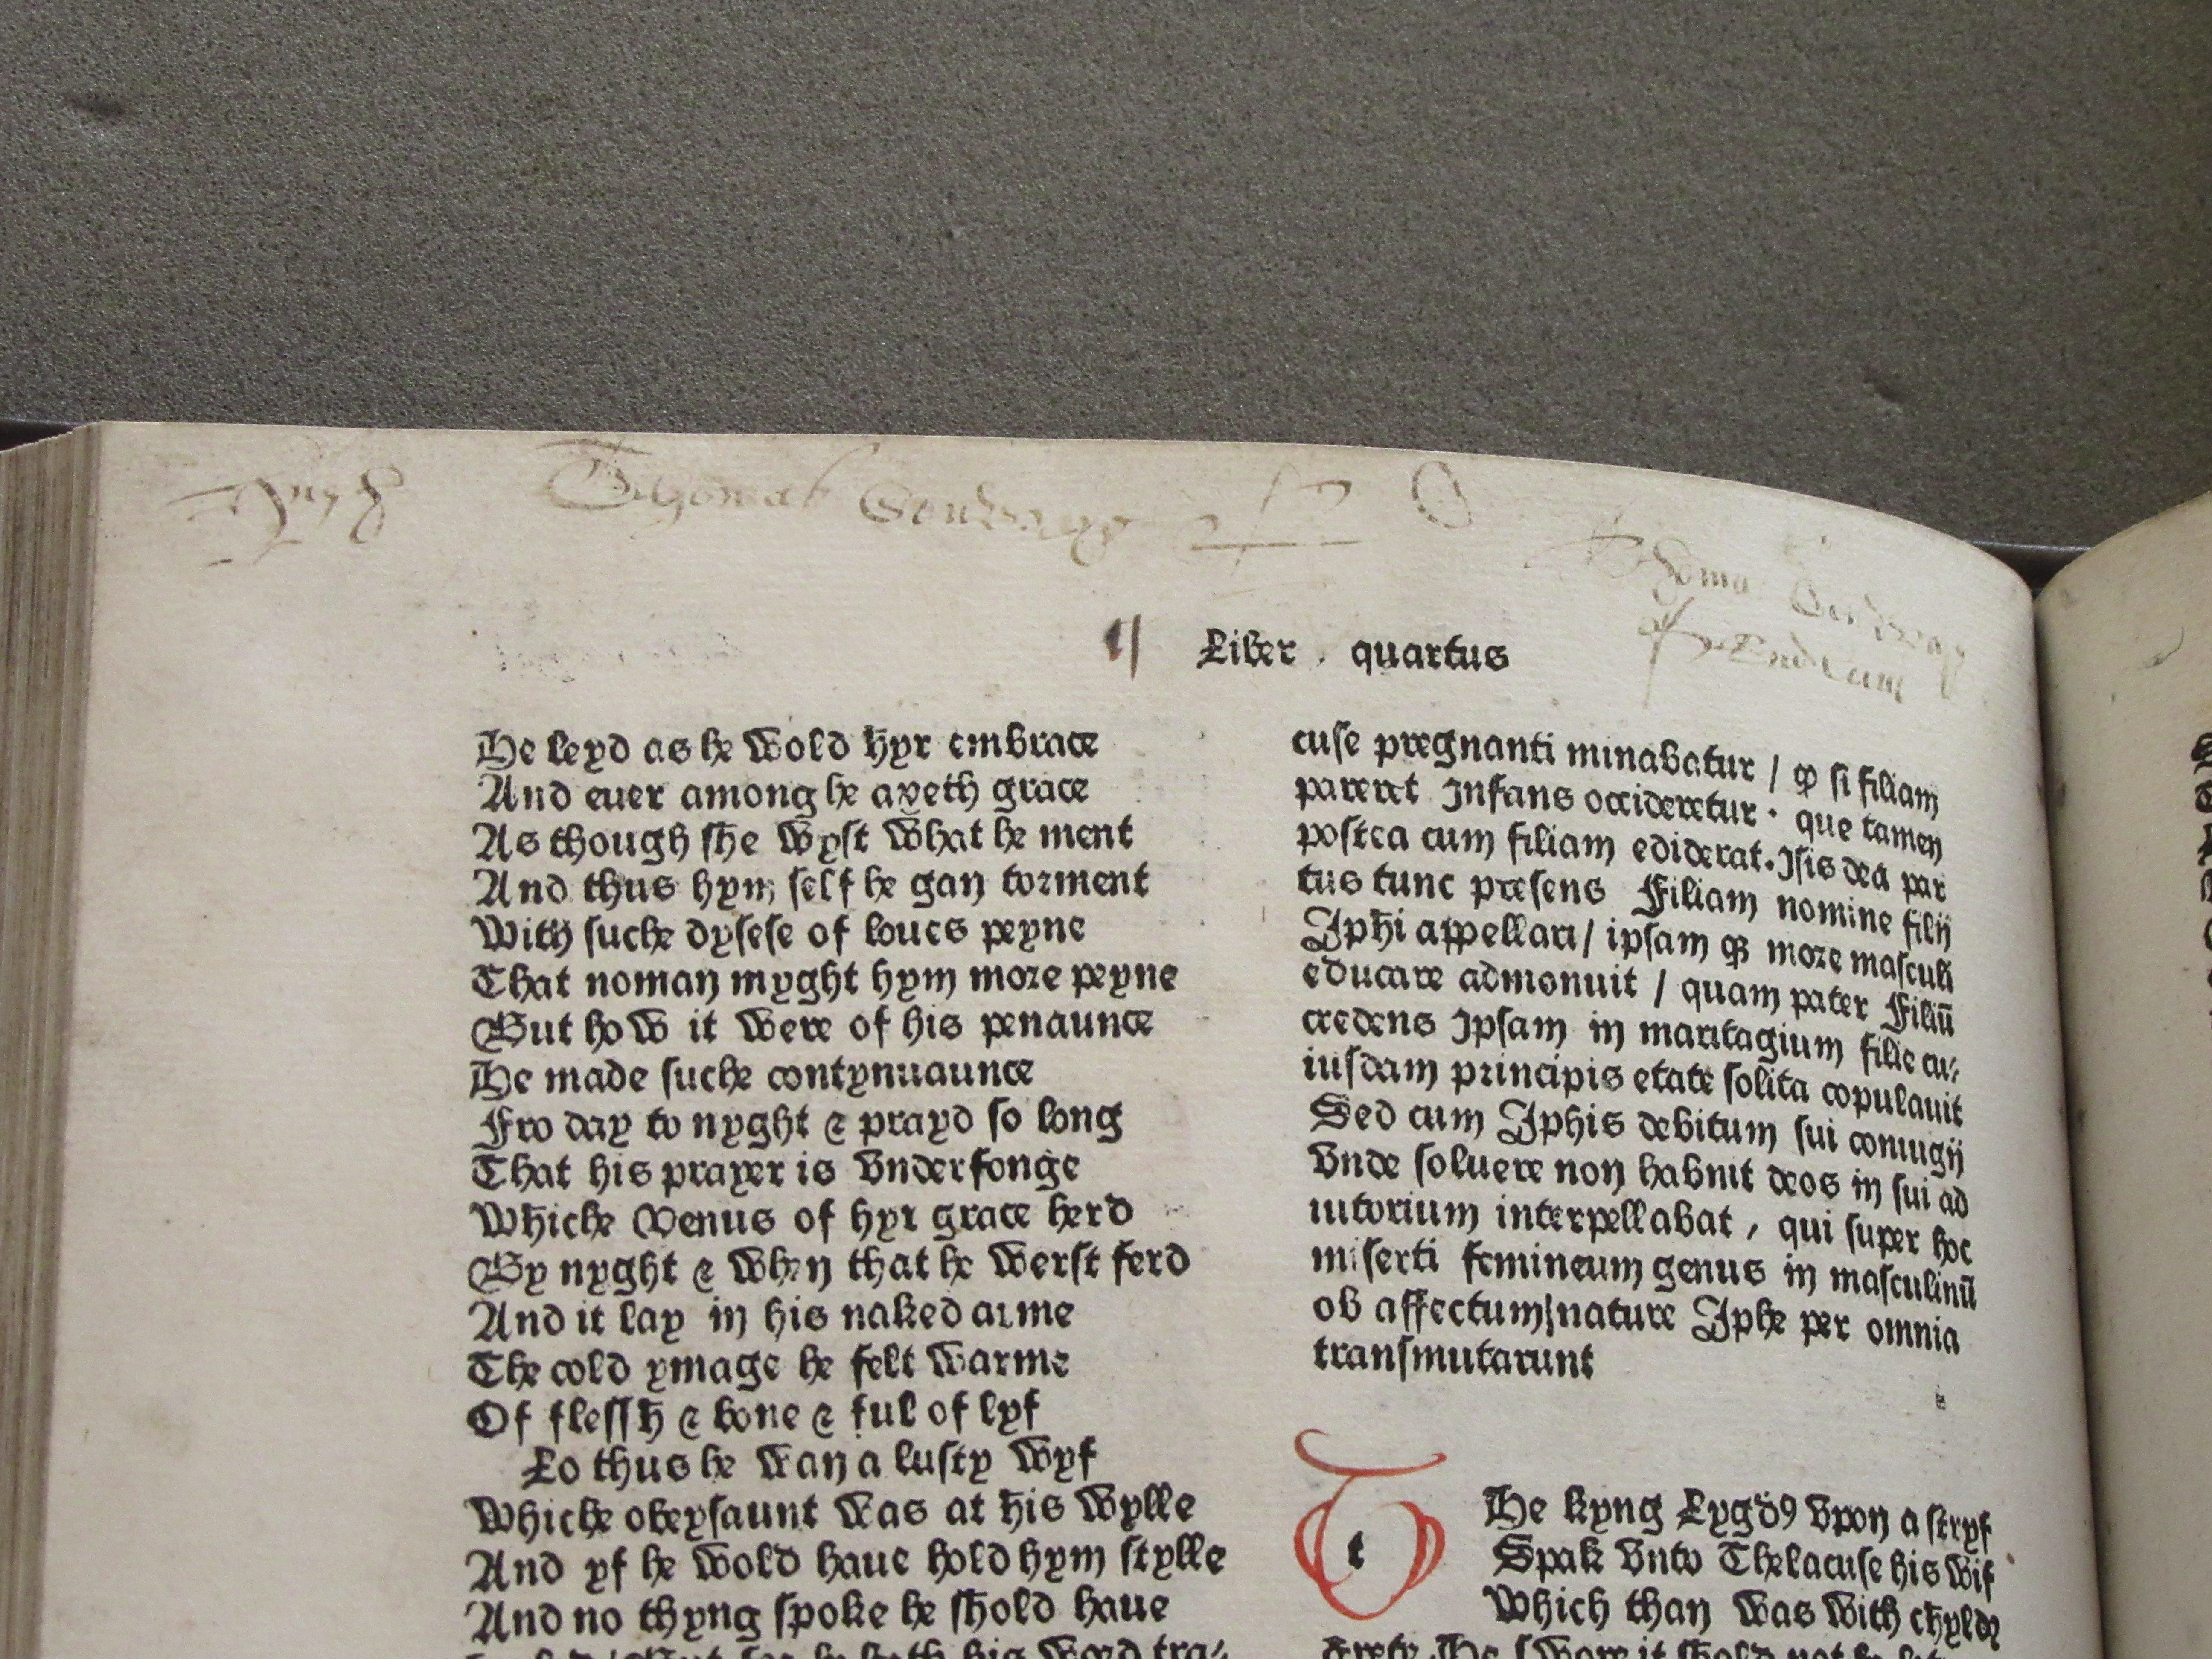 Thomas
Liber quartus
He leyd as he wold hyr embrace
And euer among he axeth grace
As though she wyst what he ment
And thus hym self he gan torment
With suche dysese of loues peyne
That noman myght hym more peyne
But how it were of his penaunce
He made suche contynuaunce
Fro day to nyght & prayd so long
That his prayer is vnderfonge
Whiche Venus of hyr grace herd
By nyght & when that he werst ferd
And it lay in his naked arme
The cold ymage he felt warme
Of flessh & bone & ful of lyf
Lo thus he wan a lusty wyf
Whiche obeysaunt was at his wylle
And yf he wold haue hold hym stylle
And no thyng spoke he shold haue
cuse pregnanti minabatur / ꝙ si filiam
pareret Infans occideretur · que tamen
postea cum filiam ediderat. Isis dea par
tus tunc presens Filiam nomine filij
Iphi appellari / ipsam qȝ more masculi
educare admonuit / quam pater Filiū
credens Ipsam in maritagium filie cu⸗
iusdam principis etate solita copulauit
Sed cum Iphis debitum sui coniugij
vnde soluere non habuit deos in sui ad
iutorium interpellabat , qui super hoc
miserti femineum genus in masculinū
ob affectum nature Iphe per omnia
transmutarunt
t
He kyng Lygdꝰ vpon a stryf
Spak vnto Thelacuse his wif
Which than was with chylde